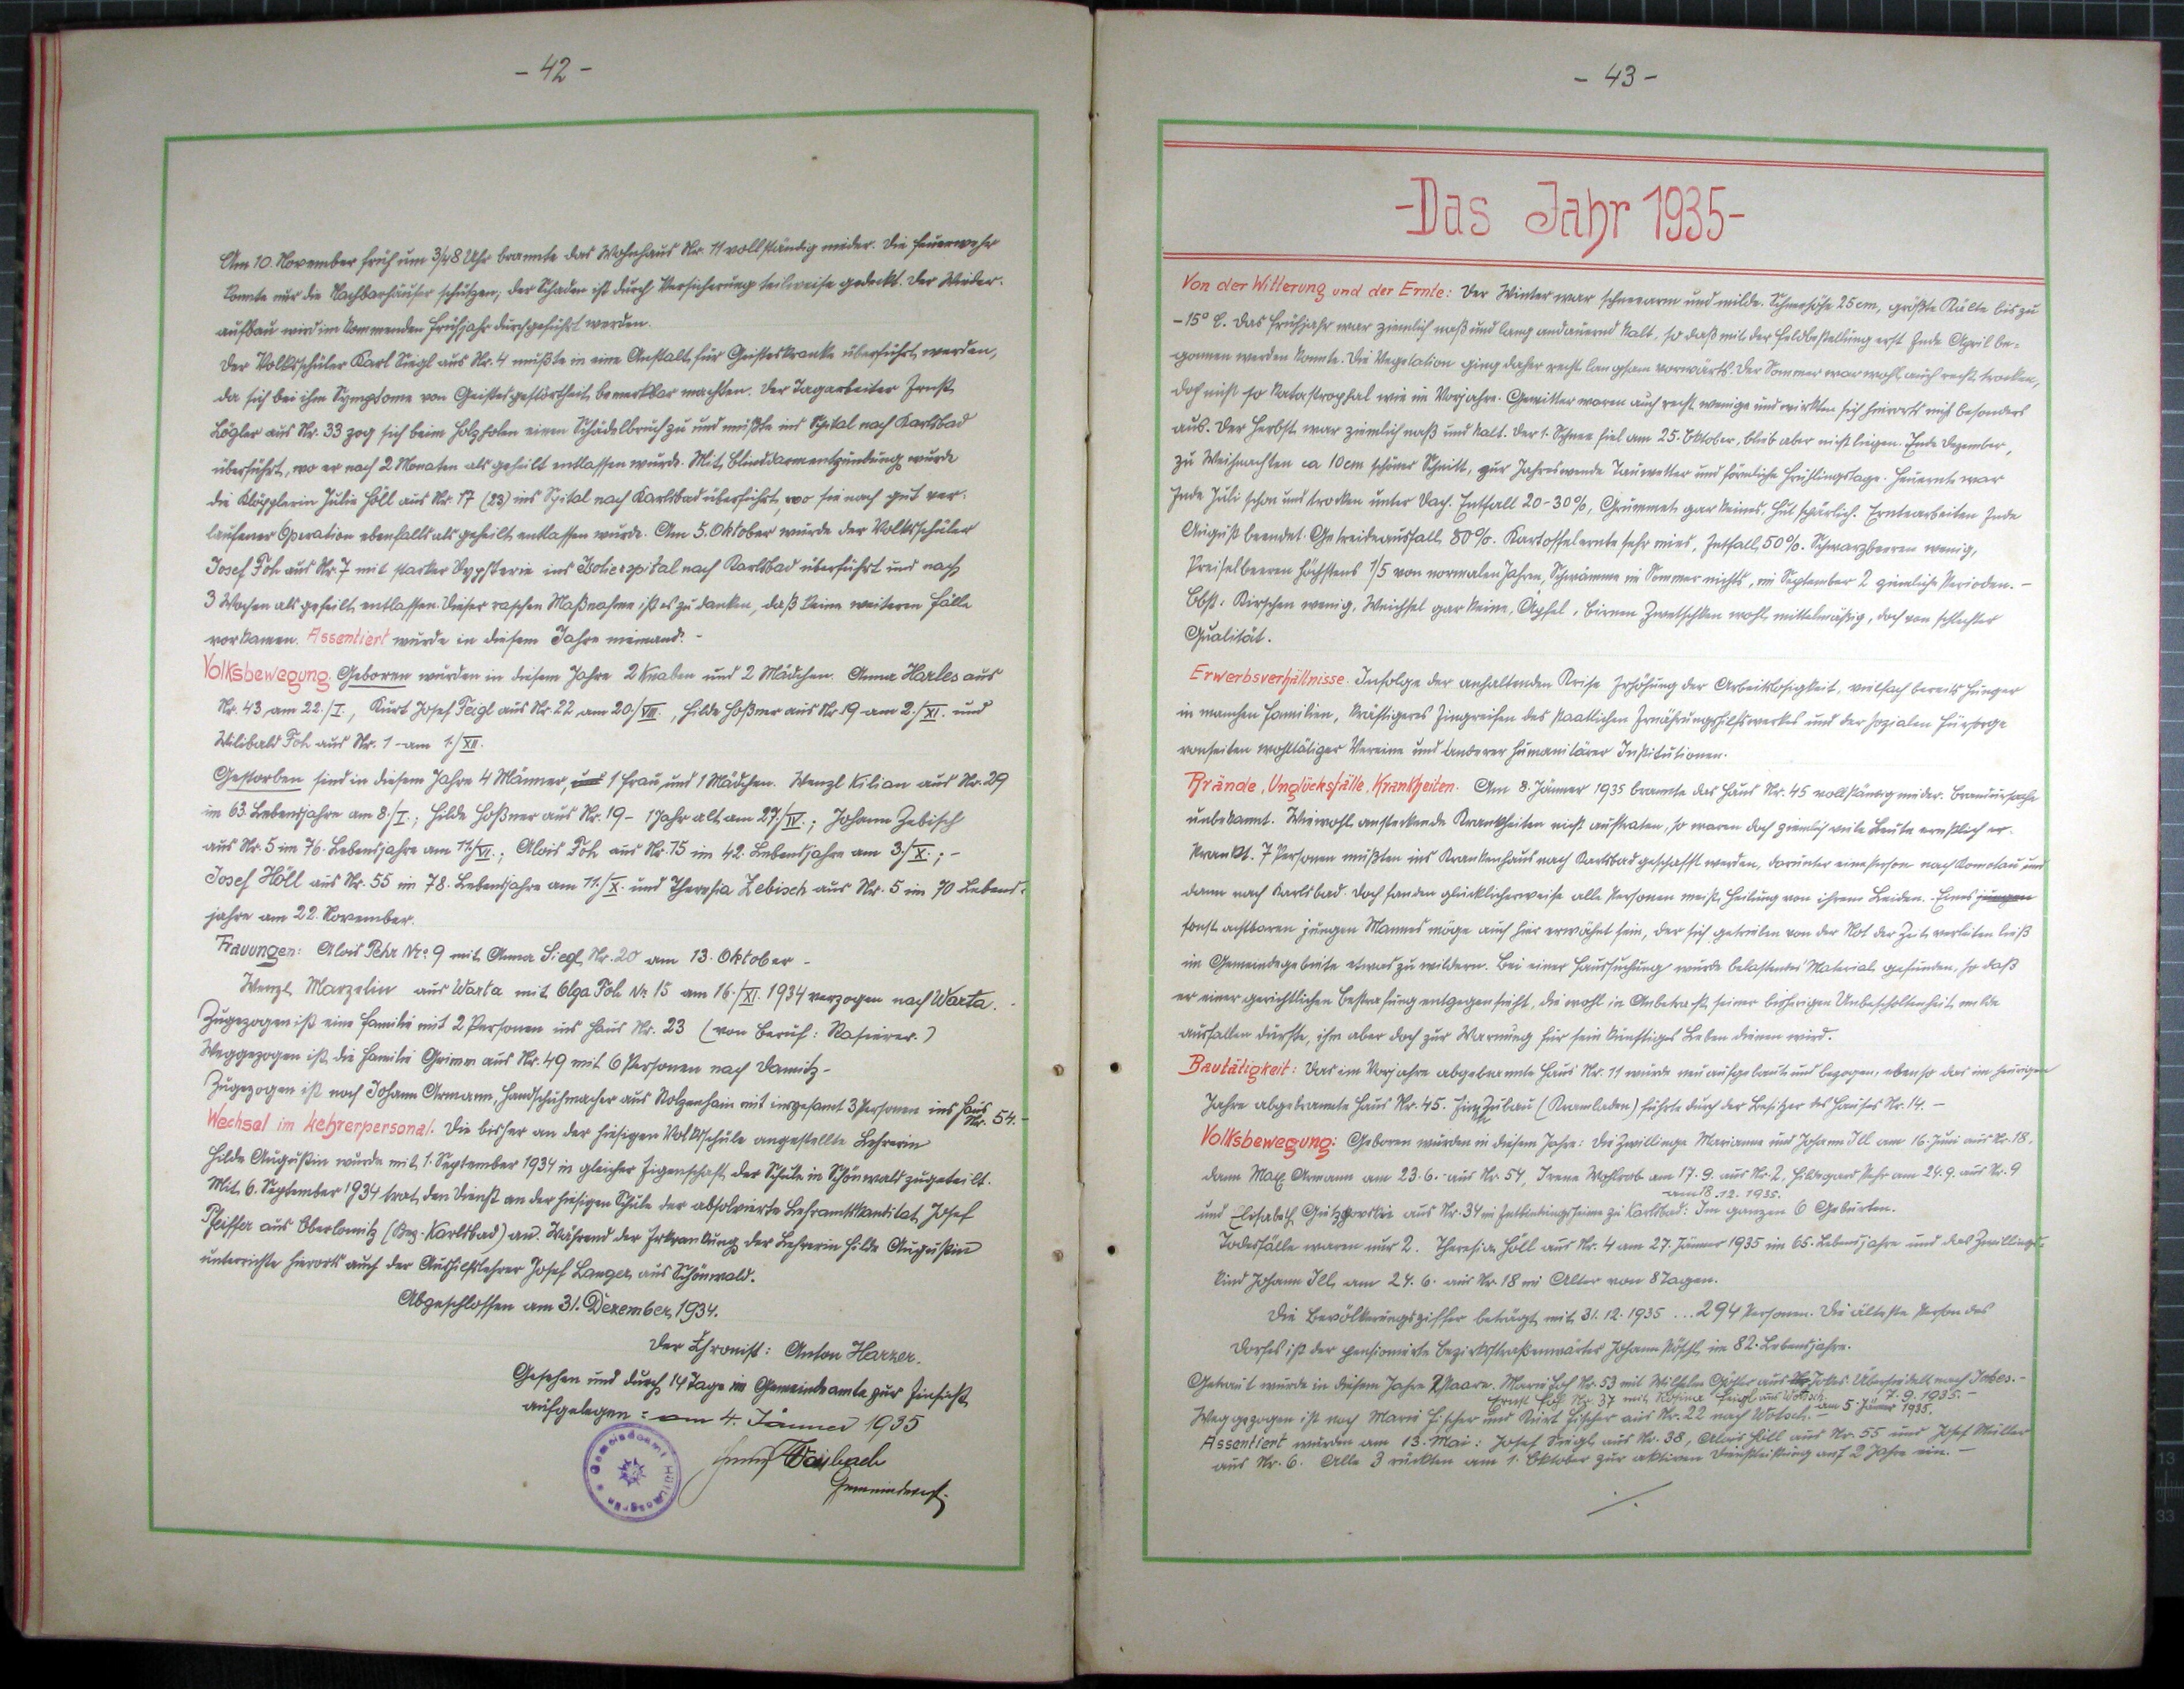 - 42 -
Am 10. November früh um 3/48 Uhr brannte das Wohnhaus Nr. 11 vollständig nieder. Die Feuerwehr
konnte nur die Nachbarhäuser schützen, der Schaden ist durch Versicherung teilweise gedeckt. Der Wieder-
aufbau wird im kommenden Frühjahr durchgeführt werden.
Der Volksschüler Karl Siegl aus Nr. 4 mußte in eine Anstalt für Geisteskranke überführt werden,
da sich bei ihm Symptome von Geistesgestörtheit bemerkbar machten. Der Tagarbeiter Ernst
Kögler aus Nr. 33 zog sich beim Holzholen einen Schädelbruch zu und mußte ins Spital nach Karlsbad
überführt, wo er nach 2 Monaten als geheilt entlassen wurde. Mit Blinddarmentzündung wurde
die Klöpplerin Julie Höll aus Nr. 17 (23) ins Spital nach Karlsbad überführt, wo sie nach gut ver-
laufener Operation ebenfalls als geheilt entlassen wurde. Am 5. Oktober wurde der Volksschüler
Josef Toh aus Nr. 7 mit starker Dyphterie ins Isolierspital nach Karlsbad überführt und nach
3 Wochen als geheilt entlassen. Dieser raschen Maßnahme ist es zu danken, daß keine weiteren Fälle
vorkamen. Assentiert wurde in diesem Jahre niemand. -
Volksbewegung. Geboren wurden in diesem Jahre 2 Knaben und 2 Mädchen. Anna Harles aus
Nr. 43 am 22./I., Kurt Josef Feigl aus Nr. 22 am 20./VIII., Hilde Hoßner aus Nr. 19 am 2./XI. und
Wilibald Toh aus Nr. 1 am 1./XII.
Gestorben sind in diesem Jahre 4 Männer, und 1 Frau und 1 Mädchen. Wenzl Kilian aus Nr. 29
im 63. Lebensjahre am 8./I.; Hilde Hoßner aus Nr. 19 - 1 Jahr alt am 27./IV.; Johann Zebisch
aus Nr. 5 im 76. Lebensjahre am 11./VI.; Alois Toh aus Nr. 15 im 42. Lebensjahre am 3./X.; -
Josef Höll aus Nr. 55 im 78. Lebensjahre am 11./X. und Theresia Zebisch aus Nr. 5 im 70 Lebens-
jahre am 22. November.
Trauungen: Alois Pehr Nr. 9 mit Anna Siegl Nr. 20 am 13. Oktober -
Wenzl Marzelin aus Warta mit Olga Toh Nr. 15 am 16./XI. 1934 verzogen nach Warta.
Zugezogen ist eine Familie mit 2 Personen ins Haus Nr. 23 (von Beruf: Rasierer.)
Weggezogen ist die Familie Grimm aus Nr. 49 mit 6 Personen nach Damitz -
Zugezogen ist noch Johann Armann, Handschuhmacher aus Stolzenhain mit insgesamt 3 Personen ins Haus Nr. 54. -
Wechsel im Lehrerpersonal. Die bisher an der hiesigen Volksschule angestellte Lehrerin
Hilde Augustin wurde mit 1. September 1934 in gleicher Eigenschaft der Schule in Schönwald zugeteilt.
Mit 6. September 1934 trat den Dienst an der hiesigen Schule der absolvierte Lehramtskandidat Josef
Pfeiffer aus Oberlomitz (Bez. Karlsbad) an. Während der Erkrankung der Lehrerin Hilde Augustin
unterrichte hierorts auch der Aushilfslehrer Josef Langer aus Schönwald.
Abgeschlossen am 31. Dezember 1934.
Der Chronist: Anton Harzer.
Gesehen und durch 14 Tage im Gemeindeamte zur Einsicht
aufgelegen: am 4. Jänner 1935
Gemeindevorst.
- 43 -
- Das Jahr 1935 -
Von der Witterung und der Ernte: Der Winter war schneearm und milde. Schneehöhe 25 cm, größte Kälte bis zu
- 15° C. Das Frühjahr war ziemlich naß und lang andauernd kalt, so daß mit der Feldbestellung erst Ende April be-
gonnen werden konnte. Die Vegetation ging daher recht langsam vorwärts. Der Sommer war wohl auch recht trocken,
doch nicht so katastrophal wie im Vorjahre. Gewitter waren auch recht wenige und wirkten sich hierorts nicht besonders
aus. Der Herbst war ziemlich naß und kalt. Der 1. Schnee fiel am 25. Oktober, blieb aber nicht liegen. Ende Dezember,
zu Weihnachten ca 10 cm schöner Schnitt, zur Jahreswende Tauwetter und förmliche Frühlingstage. Heuernte war
Ende Juli schon und trocken unter Dach. Entfall 20-30%, Grummet gar keines, Hut spärlich. Erntearbeiten Ende
August beendet. Getreideausfall 80%. Kartoffelernte sehr mies, Entfall 50%. Schwarzbeeren wenig,
Preiselbeeren höchstens 1/5 von normalen Jahren, Schwämme im Sommer nichts, im September 2 ziemliche Perioden. -
Obst: Kirschen wenig, Weichsel gar keine, Äpfel, Birnen Zwetschken wohl mittelmäßig, doch von schlechter
Qualität.
Erwerbsverhältnisse. Infolge der anhaltenden Krise Erhöhung der Arbeitslosigkeit, vielfach bereits Hunger
in manchen Familien, kräftigeres Eingreifen des staatlichen Ernährungshilfswerkes und der sozialen Fürsorge
vonseiten wohltätiger Vereine und anderer humanitärer Institutionen.
Brände, Unglücksfälle, Krankheiten. Am 8. Jänner 1935 brannte das Haus Nr. 45 vollständig nieder. Brandursache
unbekannt. Wiewohl ansteckende Krankheiten nicht auftraten, so waren doch ziemlich viele Leute ernstlich er-
krankt. 7 Personen mußten ins Krankenhaus nach Karlsbad geschafft werden, darunter eine Person nach Komotau und
dann nach Karlsbad. Doch fanden glücklicherweise alle Personen meist Heilung von ihrem Leiden. Eines jungen
sonst achtbaren jungen Mannes möge auch hier erwähnt sein, der sich getrieben von der Not der Zeit verleiten ließ
im Gemeindegebiete etwas zu wildern. Bei einer Haussuchung wurde belastendes Material gefunden, so daß
er einer gerichtlichen Bestrafung entgegensieht, die wohl in Anbetracht seiner bisherigen Unbescholtenheit milde
ausfallen dürfte, ihm aber doch zur Warnung für sein künftiges Leben dienen wird.
Bautätigkeit: Das im Vorjahre abgebrannte Haus Nr. 11 wurde neu aufgebaut und bezogen, ebenso das im heurigen
Jahre abgebrannte Haus Nr. 45. Einen Zubau (Kramladen) führte durch der Besitzer des Hauses Nr. 14. -
Volksbewegung: Geboren wurden in diesem Jahre: Die Zwillinge Marianne und Johann Ill am 16. Juni aus Nr. 18,
dann Max Armann am 23.6. aus Nr. 54, Irene Wohlrab am 17.9. aus Nr. 2, Hildegard Pehr am 24.9. aus Nr. 9
am 18.12.1935.
und Elisabeth aus Nr. 34 im Entbindungsheime zu Karlsbad: Im ganzen 6 Geburten.
Todesfälle waren nur 2. Theresia Höll aus Nr. 4 am 27. Jänner 1935 im 65. Lebensjahre und das Zwillings-
kind Johann Ill am 24.6. aus Nr. 18 im Alter von 8 Tagen.
Die Bevölkerungsziffer beträgt mit 31.12.1935 ... 294 Personen. Die älteste Person des
Dorfes ist der pensionierte Bezirksstraßenwärter Johann Pöschl im 82. Lebensjahre.
Getraut wurde in diesem Jahre 2 Paare. Marie Toh Nr. 53 mit Wilhelm aus Jokes. Übersiedelt nach Jokes. -
Ernst Toh Nr. 37 mit Rosina Feigl aus Wotsch. 7.9.1935. -
Weggezogen ist noch Marie Fischer und Kurt Fischer aus Nr. 22 nach Wotsch. am 5. Jänner 1935.
Assentiert wurden am 13. Mai: Josef Siegl aus Nr. 38, Alois Höll aus Nr. 55 und Josef Müller
aus Nr. 6. Alle 3 rückten am 1. Oktober zur aktiven Dienstleistung auf 2 Jahre ein. -